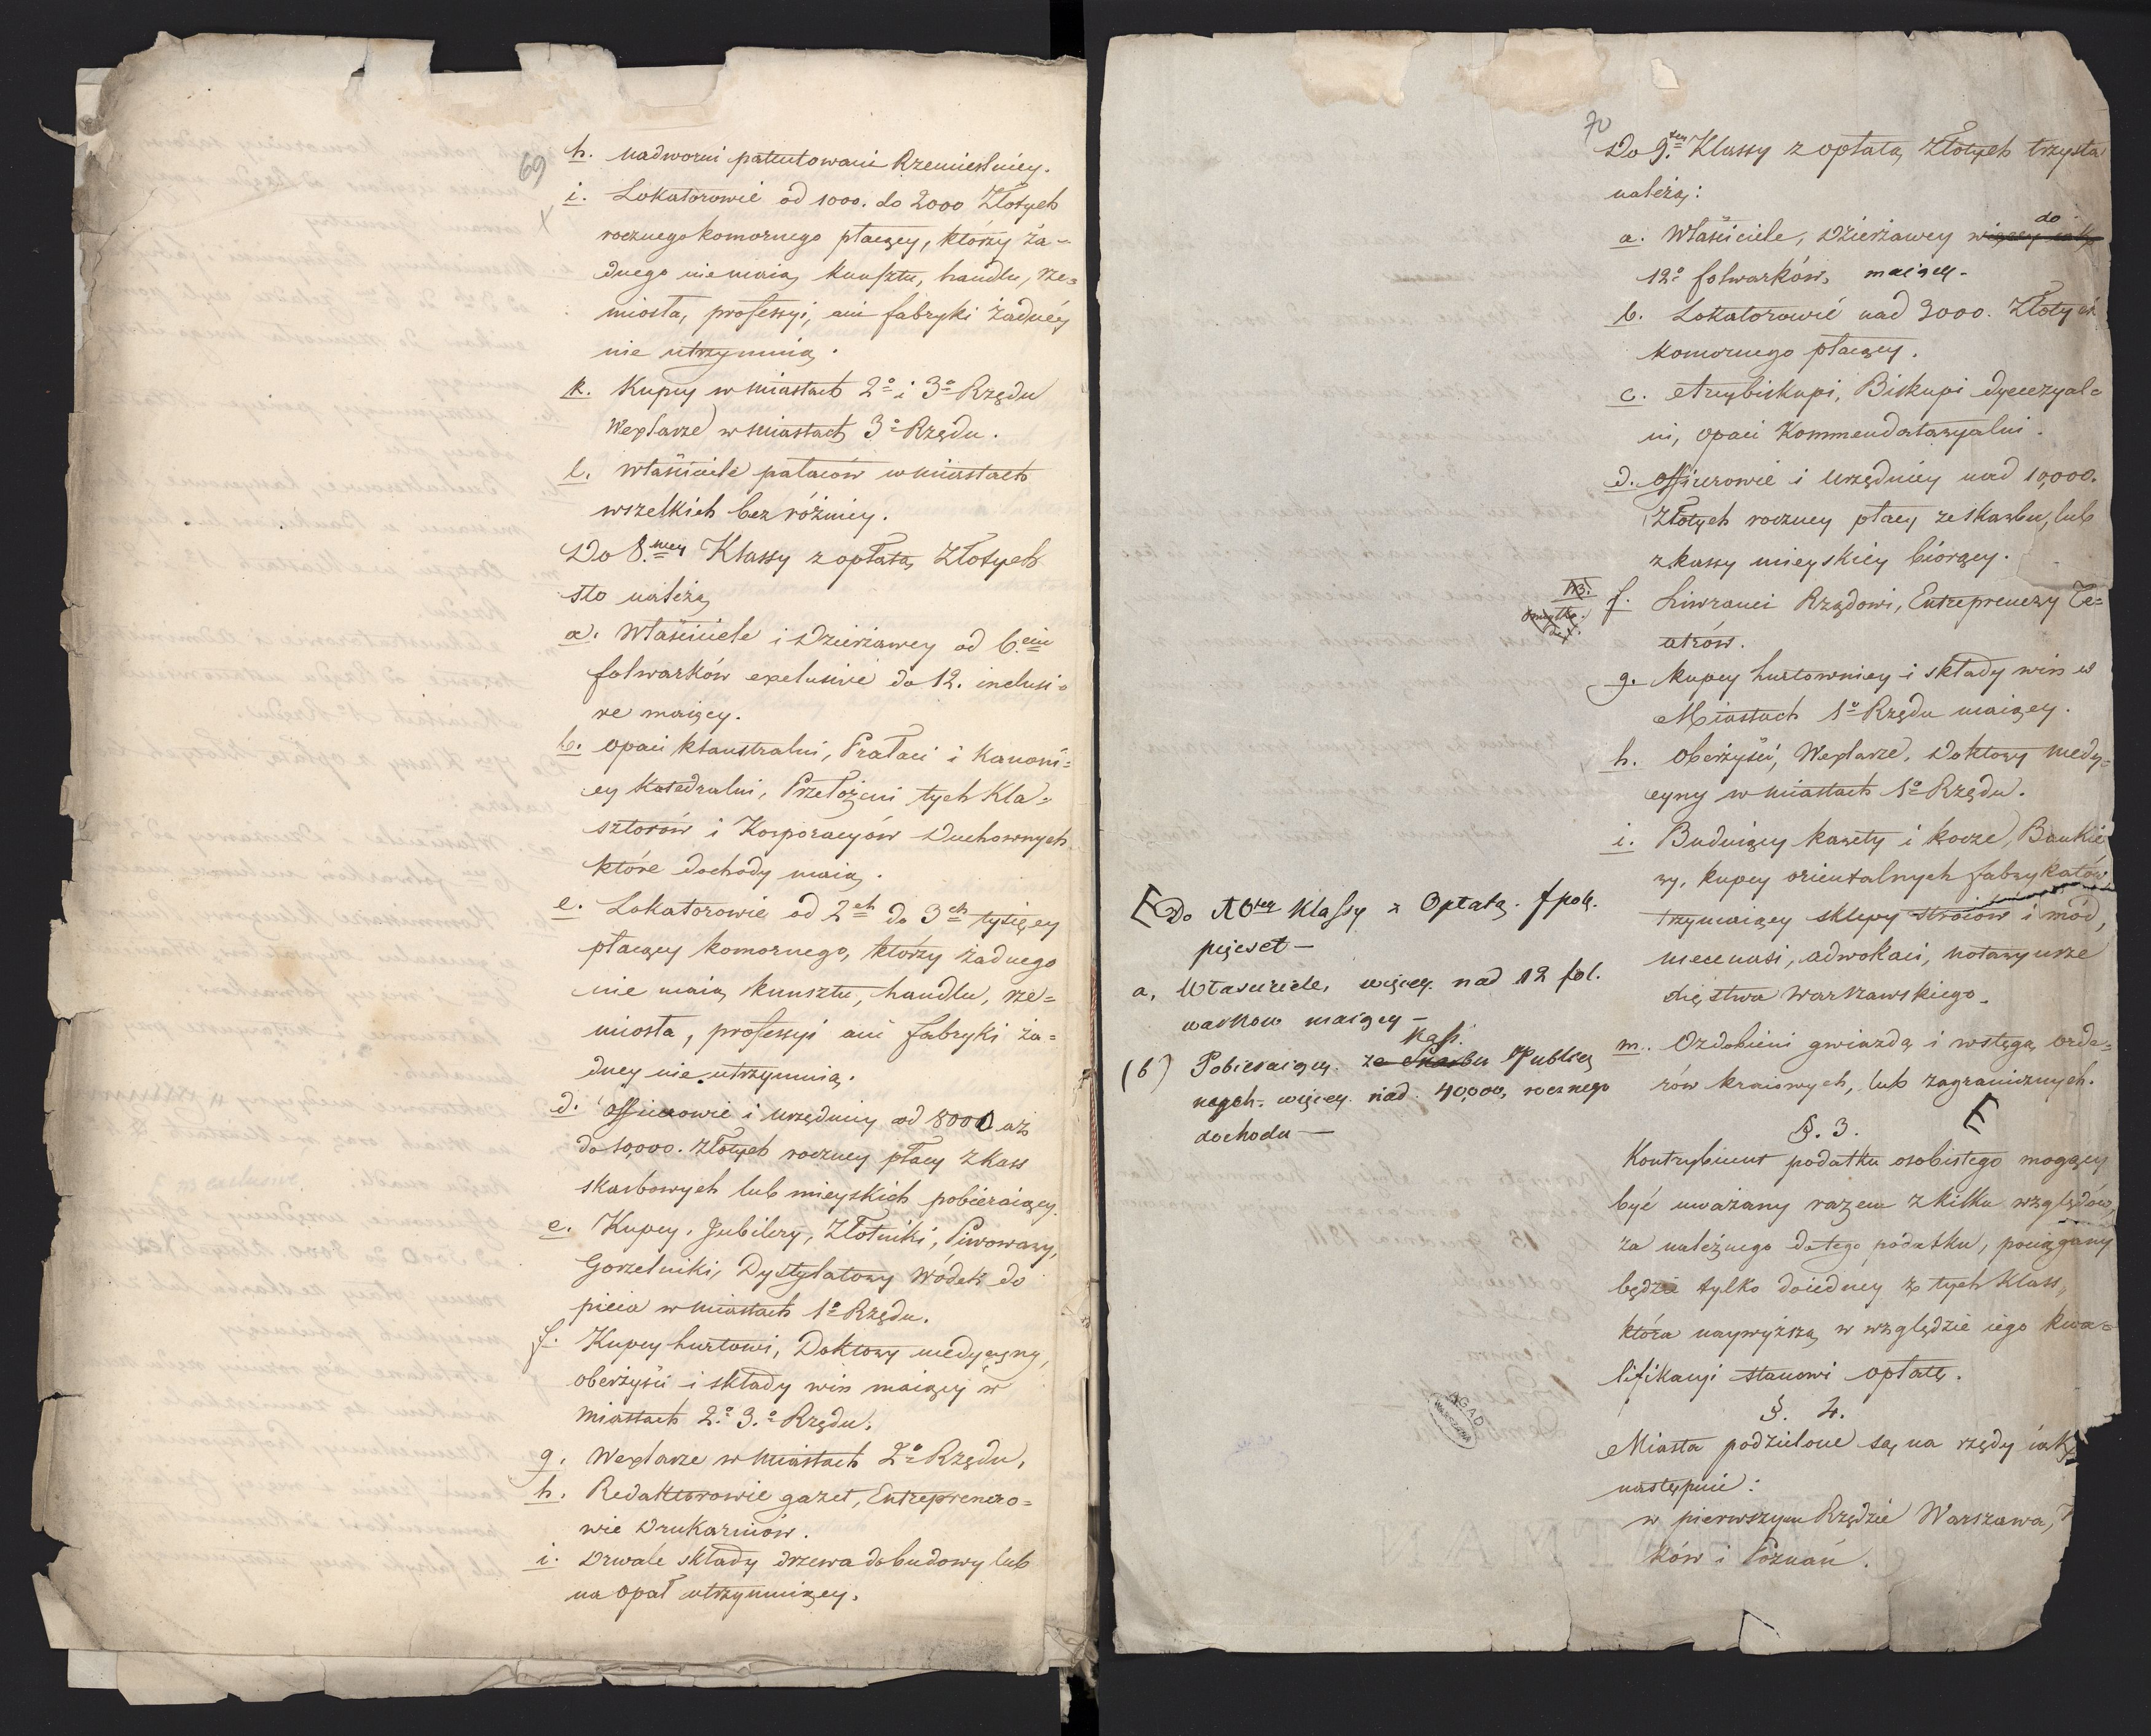 69
h. nadworni patentowani Rzemieslnicy.
i. Lokatorowie od 1000. do 2000 Złotych
rocznego komornego płacący, którzy ża-
dnego nie maią kunsztu, handlu, rze=
miosła, professyi, ani fabryki żadnéy
nie utrzymuią.
k. Kupcy w miastach 2º i 3º Rzędu
Wexlarze w miastach 3º Rzędu.
l. właściciele pałaców w miastach
wszelkich bez różnicy.
Do 8.mey Klassy z opłatą Złotych
sto należą
a. Właściciele i Dzierżawcy od 6.ciu
folwarków exclusive do 12. inclusi=
ve maiący.
b. opaci klaustralni, Prałaci i Kanoni=
cy Katedralni, Przełożeni tych Kla=
sztorów i Korporacyów Duchownych
które dochody maią.
c. Lokatorowie od 2ch do 3ch tysięcy
płacący komornego, którzy żadnego
nie maią kunsztu, handlu, rze=
miosła, professyi ani fabryki ża=
dney nie utrzymuią.
d. officerowie i urzędnicy od 8000 aż
do 10,000. złotych roczney płacy z kass
skarbowych lub mieyskich pobieraiący.
e. Kupcy, Jubilery, Złotniki, Piwowary,
Gorzelniki, Dystylatory wódek do
picia w miastach 1º Rzędu.
f. Kupcy hurtowi, Doktory medycyny,
oberżyści i składy win maiący w
miastach 2.º 3.º Rzędu.
g. Wexlarze w miastach 2º Rzędu,
h. Redaktorowie gazet, Entreprenero=
wie Drukarniów.
i. Drwale składy drzewa do budowy lub
na opał utrzymuiący.
70
Do 9.tey Klassy z opłatą Złotych trzysta
należą:
a. Właściciele, Dzierżawcy więcey iak do
12º folwarków maiący.
b. Lokatorowie nad 3000. Złotych
komornego płacący.
c. Arcybiskupi, Biskupi dyecezyal=
ni, opaci Kommendataryalni.
d. officerowie i urzędnicy nad 10,000.
Złotych roczney płacy ze skarbu, lub
z kassy mieyskiéy biorący.
NB.
omyłka
f. Liwranci Rządowi, Entreprenerzy Te=
atrów.
g. kupcy hurtowniey i składy win w
Miastach 1º Rzędu maiący.
h. Oberżyści, Wexlarze, Doktory medy=
cyny w miastach 1º Rzędu.
i. Buduiący karety i kocze, Bankie
ry, kupcy orientalnych fabrykatów
trzymaiący sklepy stroiów i mód,
mecenasi, adwokaci, notaryusze
Xięstwa Warszawskiego.
m. Ozdobieni gwiazdą i wstęgą orde=
rów kraiowych, lub zagranicznych.
E
E Do 10tey Klassy z Opłatą. f pol.
pięcset —
a, Własciciele, więcey nad 12 fol.
warkow maiący —
(b) Pobieraiący. ze Skarbu Kass. Publicz
nych. więcey. nad. 40,000, rocznego
dochodu —
§. 3.
Kontrybuent podatku osobistego mogący
być uważany razem z kilku względów,
za należnego do tego podatku, pociągany
będzie tylko do iedney z tych Klass,
która naywyższą w względzie iego kwa=
lifikacyi stanowi opłatę.
§. 4.
Miasta podzielone są na rzędy iak
następuie:
w pierwszym Rzędzie Warszawa,
ków i Poznań.
AGAD
WARSZAWA